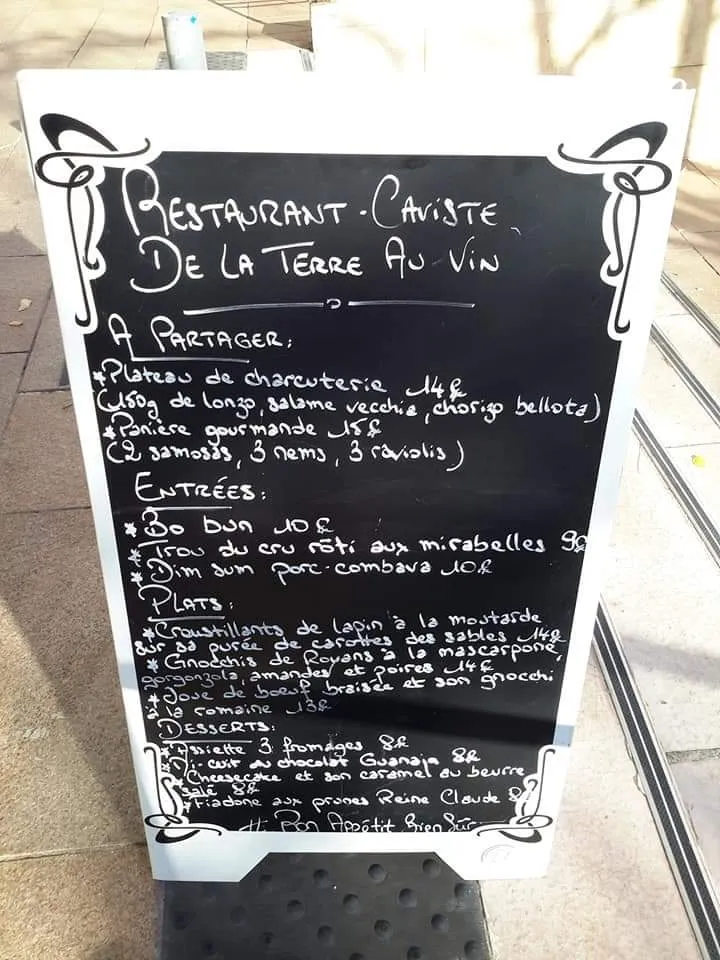 RESTAURANT - CAVISTE
DE LA TERRE AU VIN
A PARTAGER:
*Plateau de charcuterie 14€
(150g de lonzo, salame vecchia, chorizo bellota)
*Panière gourmande 15€
(2 samosas, 3 nems, 3 raviolis)
ENTRÉES:
*Bo bun 10€
*Trou du cru rôti aux mirabelles 9€
*Dim sum porc-combava 10€
PLATS:
*Croustillants de lapin à la moutarde
sur sa purée de carottes des sables 14€
*Gnocchis de Royans à la mascarpone,
gorgonzola, amandes et poires 14€
*Joue de boeuf braisée et son gnocchi
à la romaine 13€
DESSERTS:
*Assiette 3 fromages 8€
*Mi-cuit au chocolat Guanaja 8€
*Cheesecake et son caramel au beurre
salé 8€
*Fiadone aux prunes Reine Claude 8€
Bon Appétit Bien Sûr